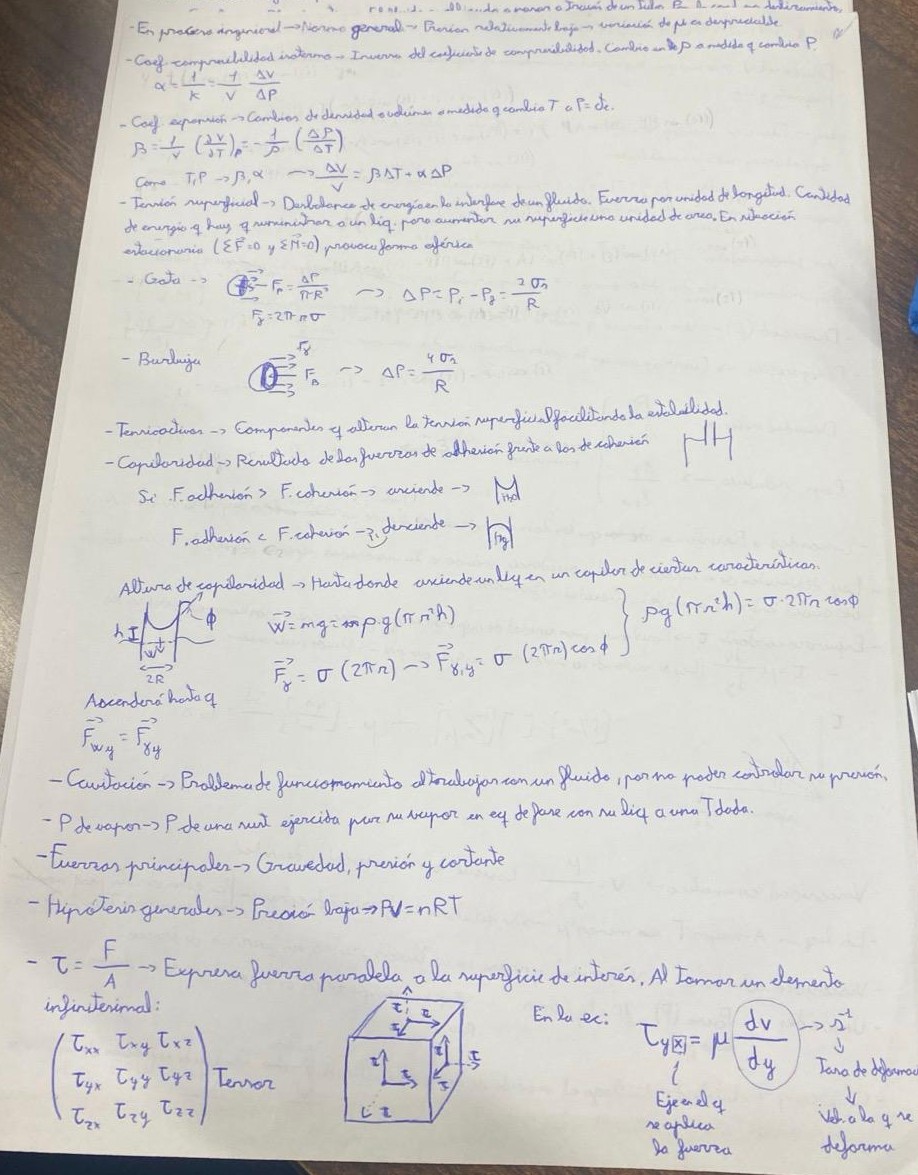 - En proceso ingenieril → Norma general → Presión relativamente baja → variación de μ es despreciable.
- Coef. compresibilidad isotermo → Inverso del coeficiente de compresibilidad. Cambio en ρ a medida q cambia P.
α = 1/K = 1/V ΔV/ΔP
- Coef. expansión → Cambios de densidad o volumen a medida q cambia T a P=cte.
β = 1/V (∂V/∂T)_P = -1/ρ (ΔP/ΔT)
Como T,P → β,α → ΔV/V = βΔT + αΔP
- Tensión superficial → Desbalance de energía en la interfase de un fluido. Fuerza por unidad de longitud. Cantidad
de energía q hay q suministrar a un liq. para aumentar su superficie una unidad de area. En situación
estacionaria (ΣF⃗=0 y ΣM⃗=0) provoca forma esférica
- Gota → F_P = ΔP/πR² → ΔP = P_i - P_f = 2σ_s/R
F_γ = 2πrσ
- Burbuja F_γ F_P → ΔP = 4σ_s/R
- Tensioactivos → Componentes q alteran la tensión superficial facilitando la estabilidad.
- Capilaridad → Resultado de las fuerzas de adhesión frente a las de cohesión
Si F. adhesión > F. cohesión → asciende → H₂O
F. adhesión < F. cohesión → desciende → Hg
Altura de capilaridad → Hasta donde asciende un liq en un capilar de ciertas características.
h W⃗ 2R ϕ
W⃗ = mg = ρ·g(πr²h)
F⃗_γ = σ(2πr) → F⃗_γ,y = σ(2πr)cosϕ
ρg(πr²h) = σ·2πr cosϕ
Ascenderá hasta q
F⃗_wy = F⃗_γy
- Cavitación → Problema de funcionamiento al trabajar con un fluido, por no poder controlar su presión.
- P de vapor → P de una sust ejercida por su vapor en eq de fase con su liq a una T dada.
- Fuerzas principales → Gravedad, presión y cortante
- Hipótesis generales → Presión baja → PV = nRT
- τ = F/A → Expresa fuerza paralela a la superficie de interés. Al tomar un elemento
infinitesimal:
τxx τxy τxz
τyx τyy τyz
τzx τzy τzz
Tensor
τ τ τ τ τ τ
En la ec:
τyx = μ dv/dy → s⁻¹
Eje en el q
se aplica
la fuerza
Tasa de deforma
Vel. a la q se
deforma